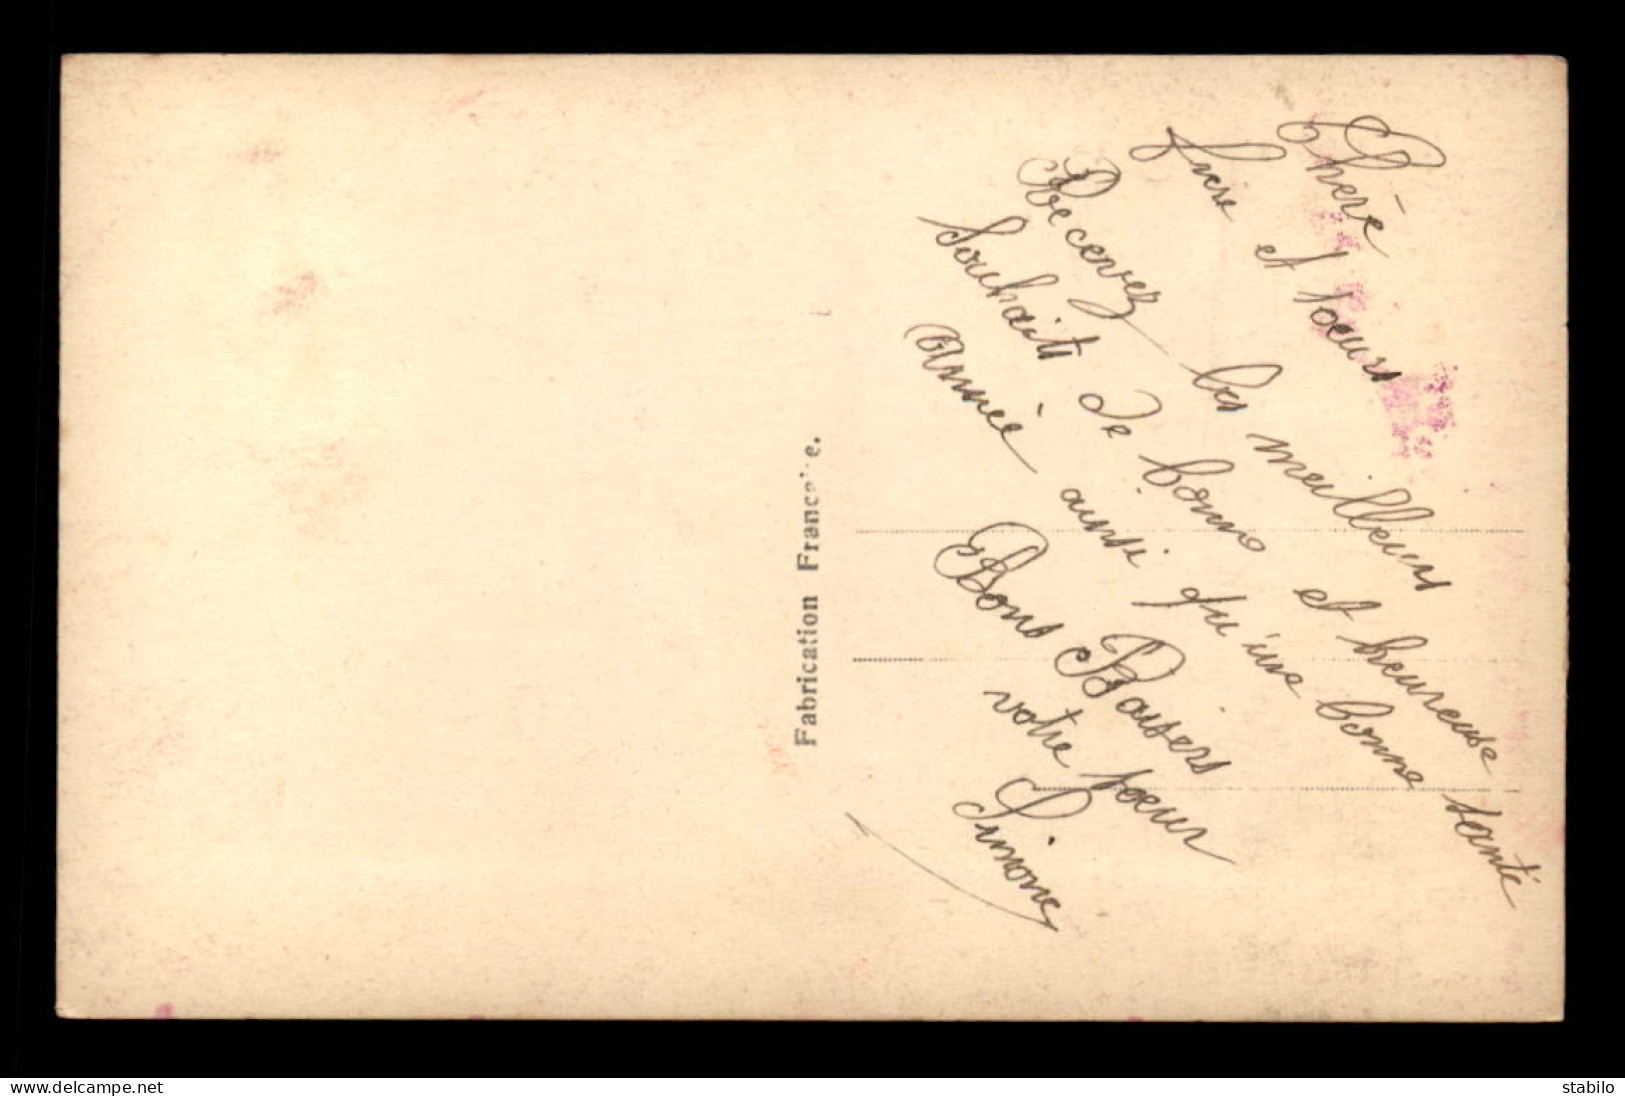 Cherè
frere et soeurs
Recevez les meilleurs
souhaits de bonne et heureuse
Année ainsi qu'une bonne santé
Bons Baisers
votre soeur
Simone
Fabrication Française.
www.delcampe.net
stabilo